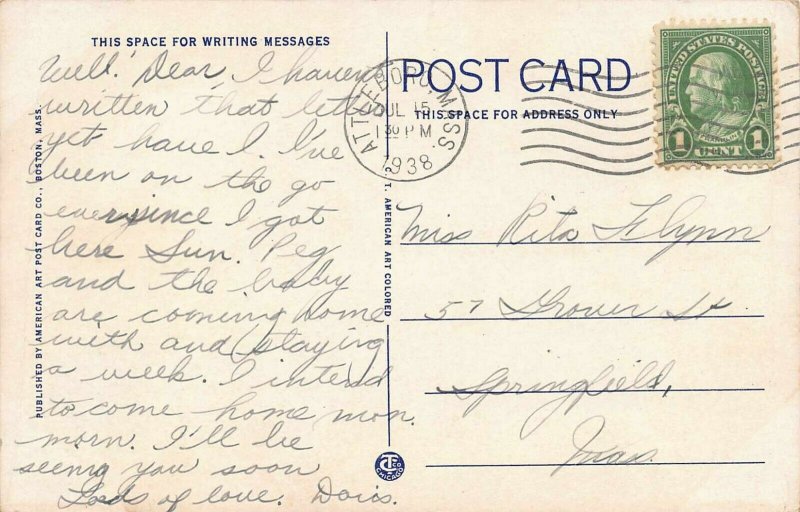 THIS SPACE FOR WRITING MESSAGES
Well! Dear, I haven't
written that letter
yet have I. I've
been on the go
ever since I got
here Sun. Peg
and the baby
are comming home
with and staying
a week. I intend
to come home mon.
morn. I'll be
seeing you soon
Loads of love. Doris.
PUBLISHED BY AMERICAN ART POST CARD CO., BOSTON, MASS.
C. T. AMERICAN ART COLORED
POST CARD
THIS SPACE FOR ADDRESS ONLY
ATTLEBORO, MASS
JUL 15
1 30 PM
1938
UNITED STATES POSTAGE
FRANKLIN
1 CENT 1
Miss Rita Flynn
57 Grover St.
Springfield,
Mass.
CT CO
CHICAGO